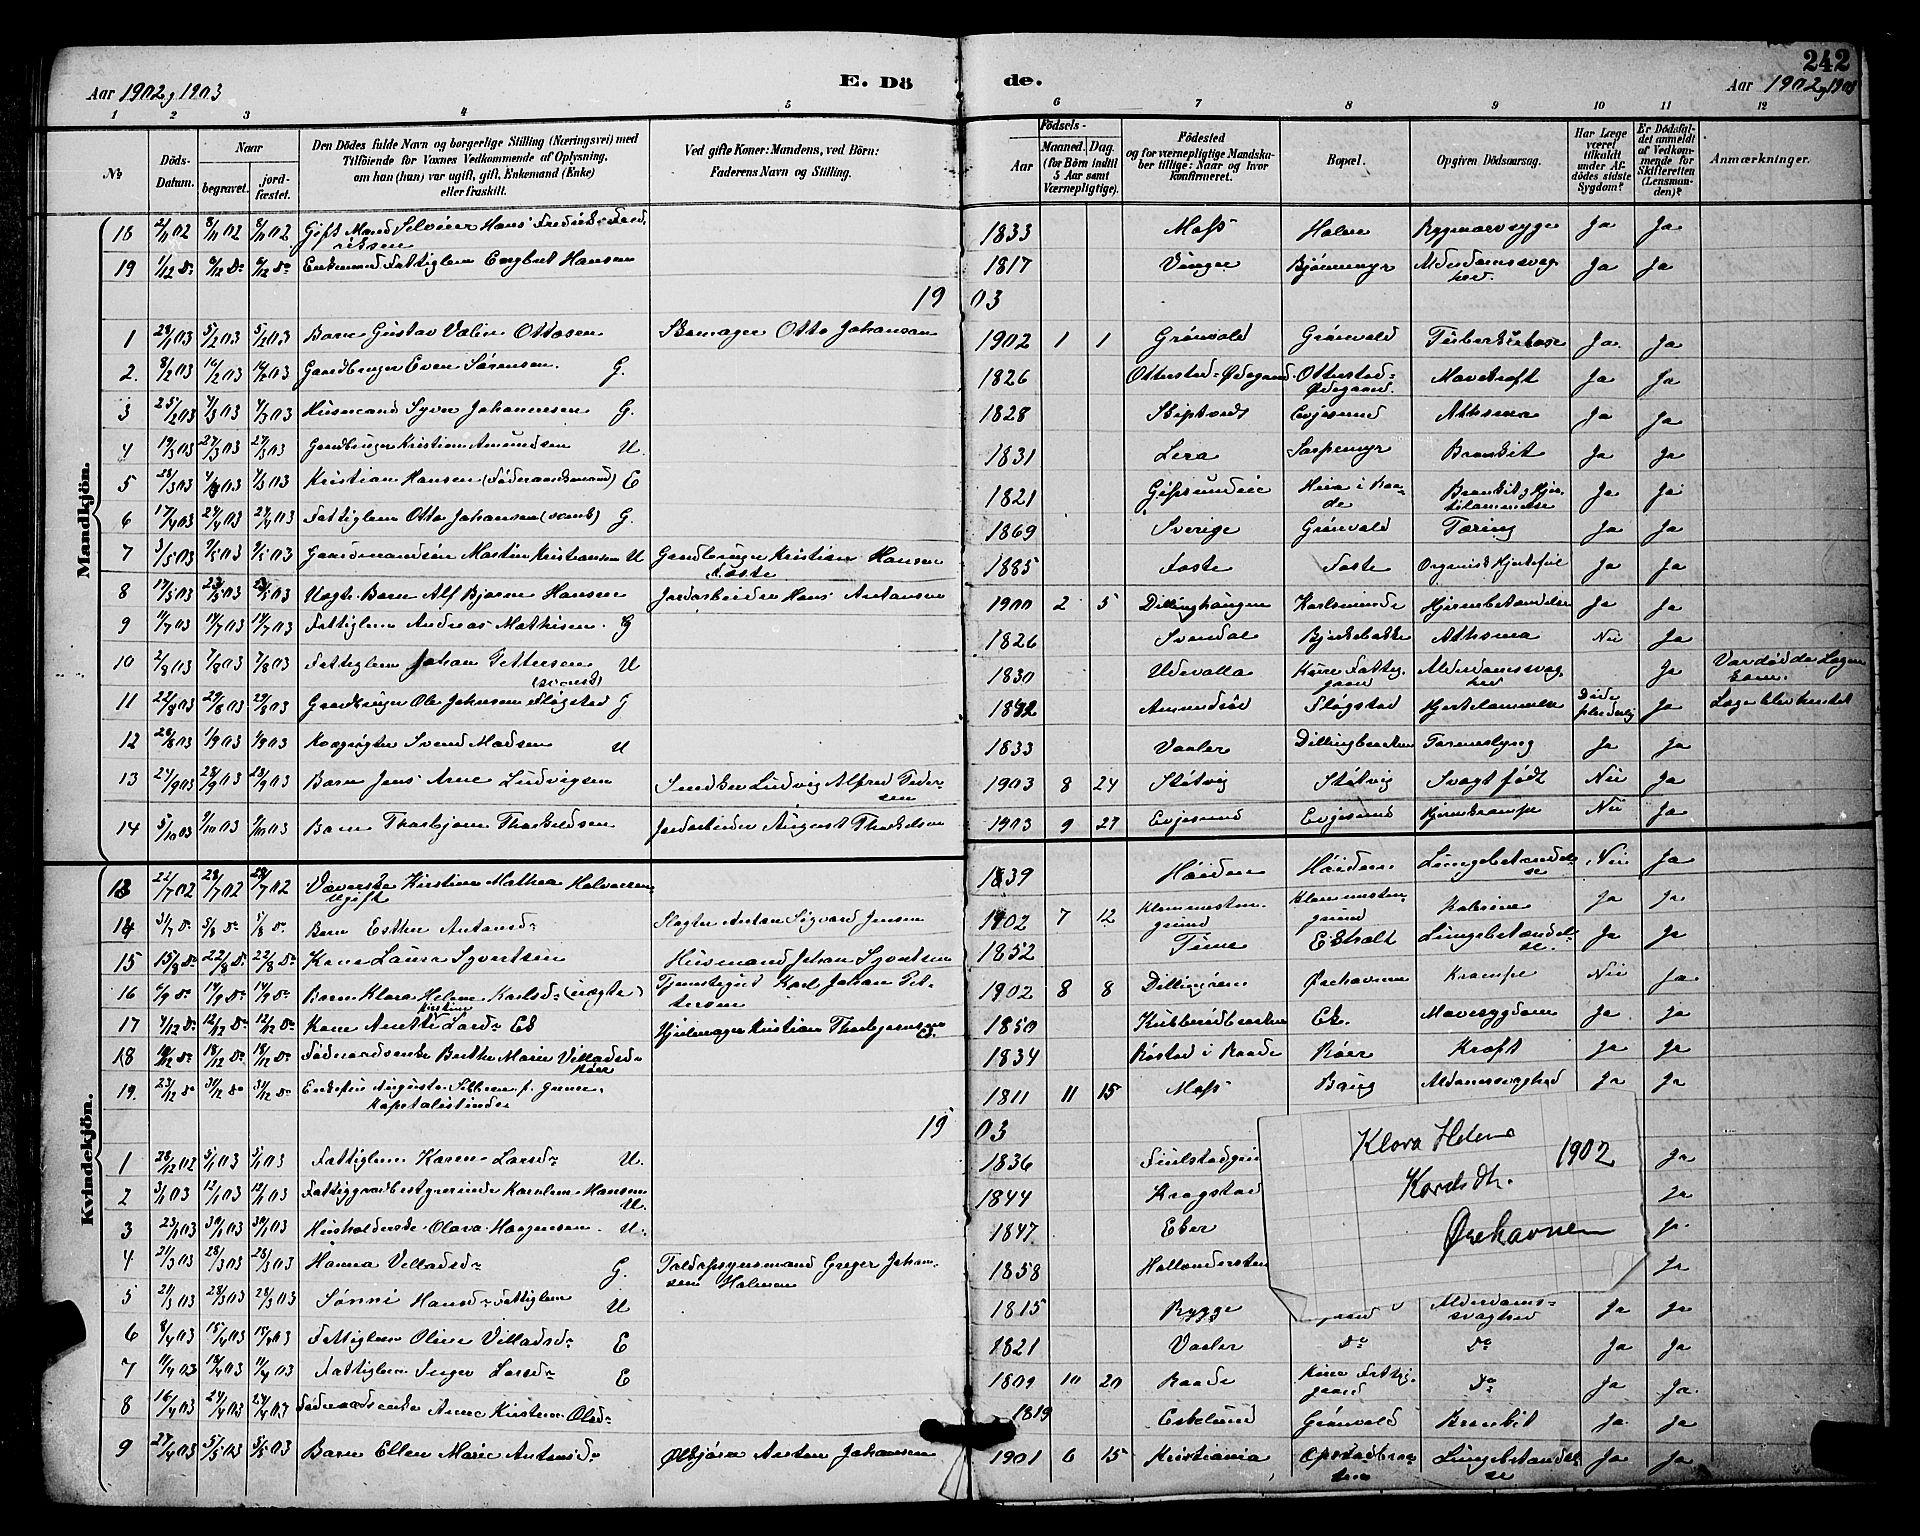 242
Aar 1902 og 1903
E. Dö de.
Aar 1902 og 1903
1 2 3 4 5 6 7 8 9 10 11 12
№
Döds-Datum.
Naar
begravet.
jordfæstet.
Den Dödes fulde Navn og borgerlige Stilling (Næringsvei) med
Tilföiende for Voxnes Vedkommende af Oplysning,
om han (hun) var ugift, gift, Enkemand (Enke)
eller fraskilt.
Ved gifte Koner: Mandens, ved Börn:
Faderens Navn og Stilling.
Födsels-
Aar
Maaned. Dag.
(for Börn indtil
5 Aar samt
Værnepligtige).
Födested
og for værnepligtige Mandskaber
tillige: Naar og hvor
konfirmeret.
Bopæl.
Opgiven Dödsaarsag.
Har Læge
været
tilkaldt
under Afdödes
sidste
Sygdom?
Er Dödsfaldet
anmeldt
af Vedkommende
for
Skifteretten
(Lensmanden)?
Anmærkninger.
Mandkjön.
18 2/11 02 8/11 02 8/11 02 Gift Mand Hans Fredrik Fredriksen 1833 Moss Holen Rygmarvsyge Ja Ja
19 1/12 do 9/12 do 9/12 do Enkemand Fattiglem Engbret Hansen 1817 Vinger Bjønnemyr Alderdomssvaghed Ja Ja
1903
1 28/1 03 5/2 03 5/2 03 Barn Gustav Valin Ottosen Skomager Otto Johansen 1902 1 1 Grönvold Grönvold Tuberkulose Ja Ja
2. 8/2 03 16/2 03 16/2 03 Gaardbruger Even Sörensen. G. 1826 Otterstad-Ødegaard Otterstad-Ødegaard Mavekræft Ja Ja
3 25/2 03 4/3 03 4/3 03 Husmand Syver Johannesen G. 1828 Skiptvedt Evjesund Asthma Ja Ja
4 19/3 03 27/3 03 27/3 03 Gaardbruger Kristian Amundsen U. 1831 Lera Sarpemyr Bronkit Ja Ja
5 28/3 03 Kristian Hansen (Föderaadsmand) E 1821 Gipsundeie Ja Ja
6 17/4 03 24/4 03 24/4 03 Fattiglem Otto Johansen (svensk) G. 1869 Sverige Grönvold Tæring Ja Ja
7 3/5 03 9/5 03 9/5 03 Gaardmandssön Martin Kristiansen U Gaardbruger Kristian Hansen Foste 1885 Foste Foste Organisk Hjertefeil Ja Ja
8 17/5 03 23/5 03 23/5 03 Uægte Barn Alf Bjarne Hansen Jordarbeider Hans Antonsen 1900 2 5 Dillinghaugen Karlsminde Hjernebetændelse Ja Ja
9 11/7 03 17/7 03 17/7 03 Fattiglem Andreas Mathisen G 1826 Svendal Bjerkebakken Asthma Nei Ja
10 2/8 03 7/8 03 7/8 03 Fattiglem Johan Pettersen (svensk) U 1830 Udevalla Kure Fattiggaard Alderdomssvaghed Ja Var död da Lægen kom.
11 22/8 03 29/8 03 29/8 03 Gaardbruger Ole Johnsen Flögstad G Amundröd Flögstad Hjertelammelse Döde pludselig Ja Læge blev hentet
12 28/8 03 1/9 03 1/9 03 Svend Madsen U 1833 Vaaler Dillingbraaten Tarmeslyng Ja Ja
13 24/9 03 28/9 03 28/9 03 Barn Jens Arne Ludvigsen Ludvig Alfred Pedersen 1903 8 24 Støtvig Støtvig Svagt födt Nei Ja
14 5/10 03 9/10 03 9/10 03 Barn Thorbjørn Thorkildsen Jordarbeider August Thorkildsen 1903 9 27 Evjesund Evjesund Hjernekrampe Nei Ja
Kvindekjön.
13 22/7 02 28/7 02 28/7 02 Væverske Kirstine Mathea Halvorsen ugift 1839 Höiden Höiden Lungebetændelse Nei Ja
14 31/7 do 5/8 do 5/8 do Barn Esther Antonsdr Slagter Anton Sigvard Jensen 1902 7 12 Klommestengrund Klommestengrund Kolerine Ja Ja
15 15/8 do 22/8 do 22/8 do Kone Laura Syvertsen Husmand Johan Syvertsen 1852 Tune Ekholt Lungebetændelse. Ja Ja
16 9/9 do 14/9 do 14/9 do Barn Klara Helene Karlsd. (uægte) Tjenestegut Karl Johan Pettersen 1902 8 8 Dillingören Ørehavnen Krampe Nei Ja
17 4/12 do 12/12 do 12/12 do Kone Anette Kirstine Larsdr Ek Hjulmager Kristian Thorbjørnsen Ek. 1850 Kubberödbraaten Ek. Mavesygdom Ja Ja
18 10/12 do 18/12 do 18/12 do Föderaadsenke Berthe Marie Villadsdr Röer 1834 Röstad i Raade Röer Kræft Ja Ja
19. 23/12 do 31/12 do 31/12 do Enkefru Augusta f. Kapitalistinde 1811 11 15 Moss Alderdomssvaghed Ja Ja
1903
1 28/12 02 5/1 03 5/1 03 Fattiglem Karen Larsdr U. 1836 Ja
2 3/1 03 12/1 03 12/1 03 Fattiggaardbestyrerinde Karoline Hansen U. 1844 Kragstad Ja
3 23/1 03 30/1 03 30/1 03 Husholderske Olava Haagensen. U. 1847 Eker Ja.
4 21/3 03 28/3 03 28/3 03 Hanna Villadsdr G. Toldopsynsmand Greger Johansen Holmen 1858 Hollandersten Ja
5 21/3 03 28/3 03 28/3 03 Sönni Hansdr Fattiglem U 1815 Rygge Alderdomssvaghed Ja Ja
6 8/4 03 15/4 03 15/4 03 Fattiglem Oline Villadsdr E 1821 Vaaler do do Ja Ja
7 11/4 03 18/4 03 Fattiglem Inger Larsdr E 1809 10 20 Raade Kure Fattiggaard do Ja Ja
8 16/4 03 24/4 03 24/4 03 Föderaadsenke Anne Kirstine Olsdr 1819 Eskelund Grönvold Bronkit Ja. Ja
9 27/4 03 5/5 03 5/5 03 Barn Ellen Marie Antonsdr Ølkjører Anton Johansen 1901 6 15 Kristiania Opstadbraaten Lungebetændelse Ja Ja
Klara Helene
Karlsdtr.
1902
Ørehavnen